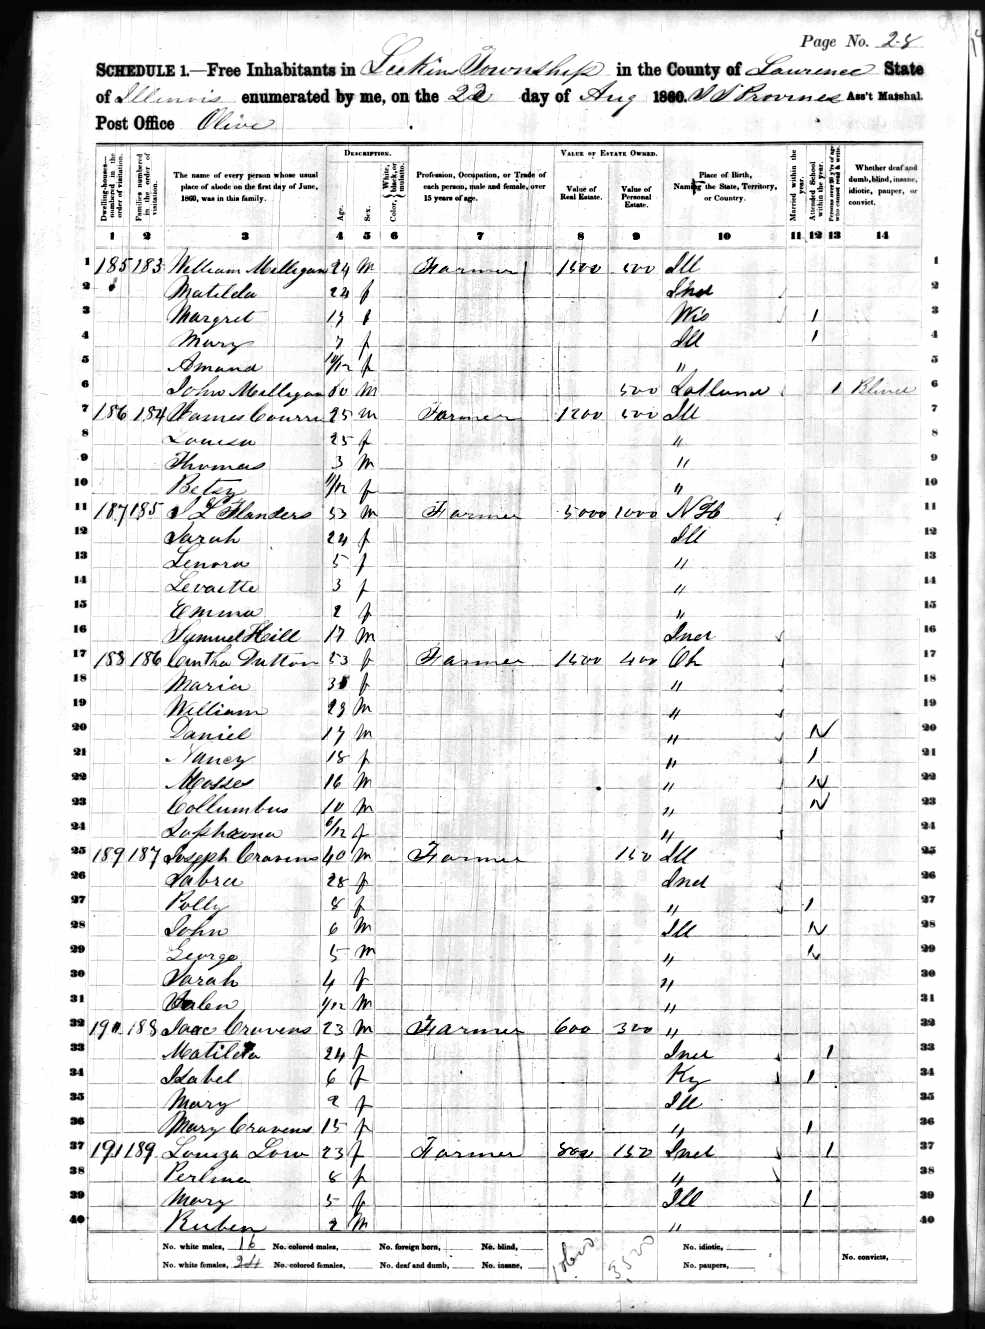 Page No. 28
SCHEDULE 1.—Free Inhabitants in Township in the County of Lawrence State
of Illinois enumerated by me, on the 22 day of Aug 1860. Ass't Marshal.
Post Office Olive
DESCRIPTION. VALUE OF ESTATE OWNED.
Dwelling-houses—numbered in the order of visitation. Families numbered in the order of visitation. The name of every person whose usual place of abode on the first day of June, 1860, was in this family. Age. Sex. Color, White, black, or mulatto. Profession, Occupation, or Trade of each person, male and female, over 15 years of age. Value of Real Estate. Value of Personal Estate. Place of Birth, Naming the State, Territory, or Country. Married within the year. Attended School within the year. Persons over 20 years of age who cannot read & write. Whether deaf and dumb, blind, insane, idiotic, pauper, or convict.
1 2 3 4 5 6 7 8 9 10 11 12 13 14
1 185 183 William Milligan 24 m Farmer 1500 Ill 1
2 Matilda 24 f Ind 2
3 Margret Wis 1 3
4 Mary 7 f Ill 1 4
5 Amand 10/12 f " 5
6 John Milligan 80 m 500 1 Blind 6
7 186 184 James 25 m Farmer 1200 Ill 7
8 Louisa 25 f " 8
9 Thomas 3 m " 9
10 Betsy 11/12 f " 10
11 187 185 Flanders 53 m Farmer 5000 1000 N H 11
12 Sarah 24 f Ill 12
13 Lenora 5 f " 13
14 3 f " 14
15 Emma 2 f " 15
16 Samuel Hill 17 m Ind 16
17 188 186 Dutton 53 f Farmer 1500 400 Oh 17
18 Maria f " 18
19 William m " 19
20 Daniel m " 20
21 Nancy 18 f " 1 21
22 Mosses 16 m " 22
23 Collumbus 10 m " 23
24 6/12 f " 24
25 189 187 Joseph Cravens 40 m Farmer 150 Ill 25
26 Sabra 28 f Ind 26
27 Polly 8 f " 1 27
28 John 6 m Ill 28
29 George 5 m " 29
30 Sarah 4 f " 30
31 1/12 m " 31
32 190 188 Isaac Cravens 23 m Farmer 600 300 " 32
33 Matilda 24 f Ind 1 33
34 Isabel 6 f Ky 1 34
35 Mary 2 f Ill 35
36 Mary Cravens 15 f " 1 36
37 191 189 Louiza Low 23 f Farmer 800 150 Ind 1 37
38 Perlina 8 f " 38
39 Mary 5 f Ill 1 39
40 Ruben 2 m " 40
No. white males, 16 No. colored males, No. foreign born, No. blind, No. idiotic, No. convicts,
No. white females, 24 No. colored females, No. deaf and dumb, No. insane, No. paupers,